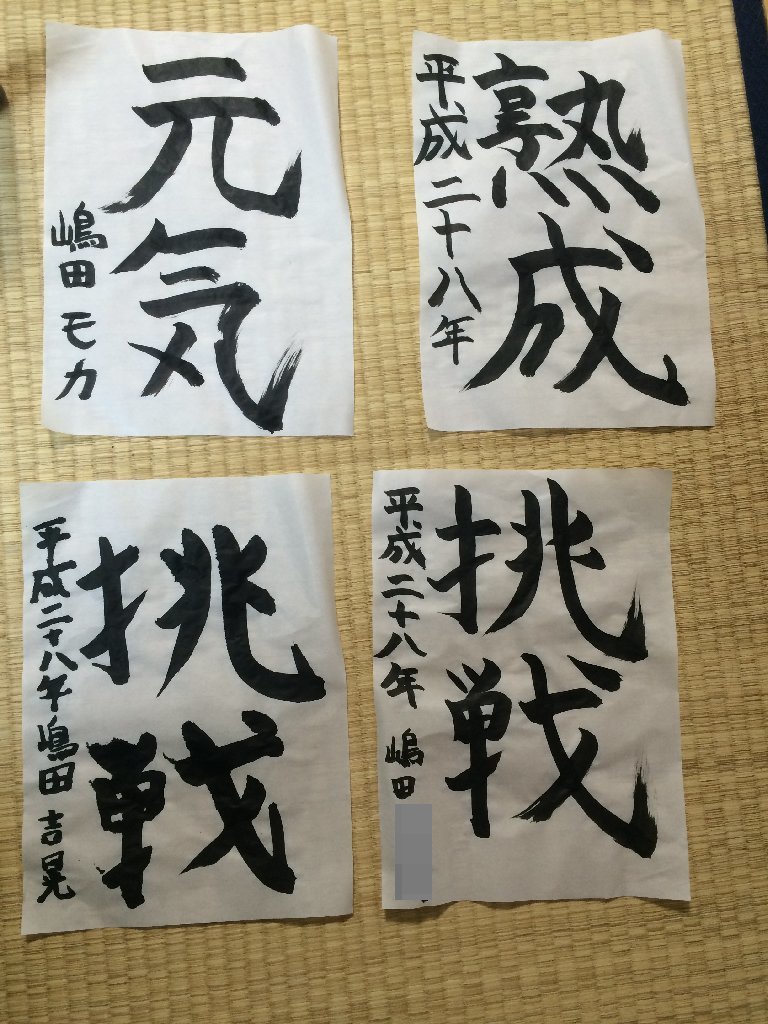 元気
嶋田モカ
熟成
平成二十八年
挑戦
平成二十八年嶋田吉晃
挑戦
平成二十八年 嶋田